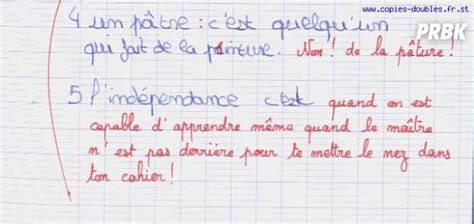 www.copies-doubles.fr.st
PRBK
4 un pâtre : c'est quelqu'un
qui fait de la peinture. Non ! de la pâture !
5 l'indépendance c'est quand on est
capable d'apprendre même quand le maître
n'est pas derrière pour te mettre le nez dans
ton cahier !